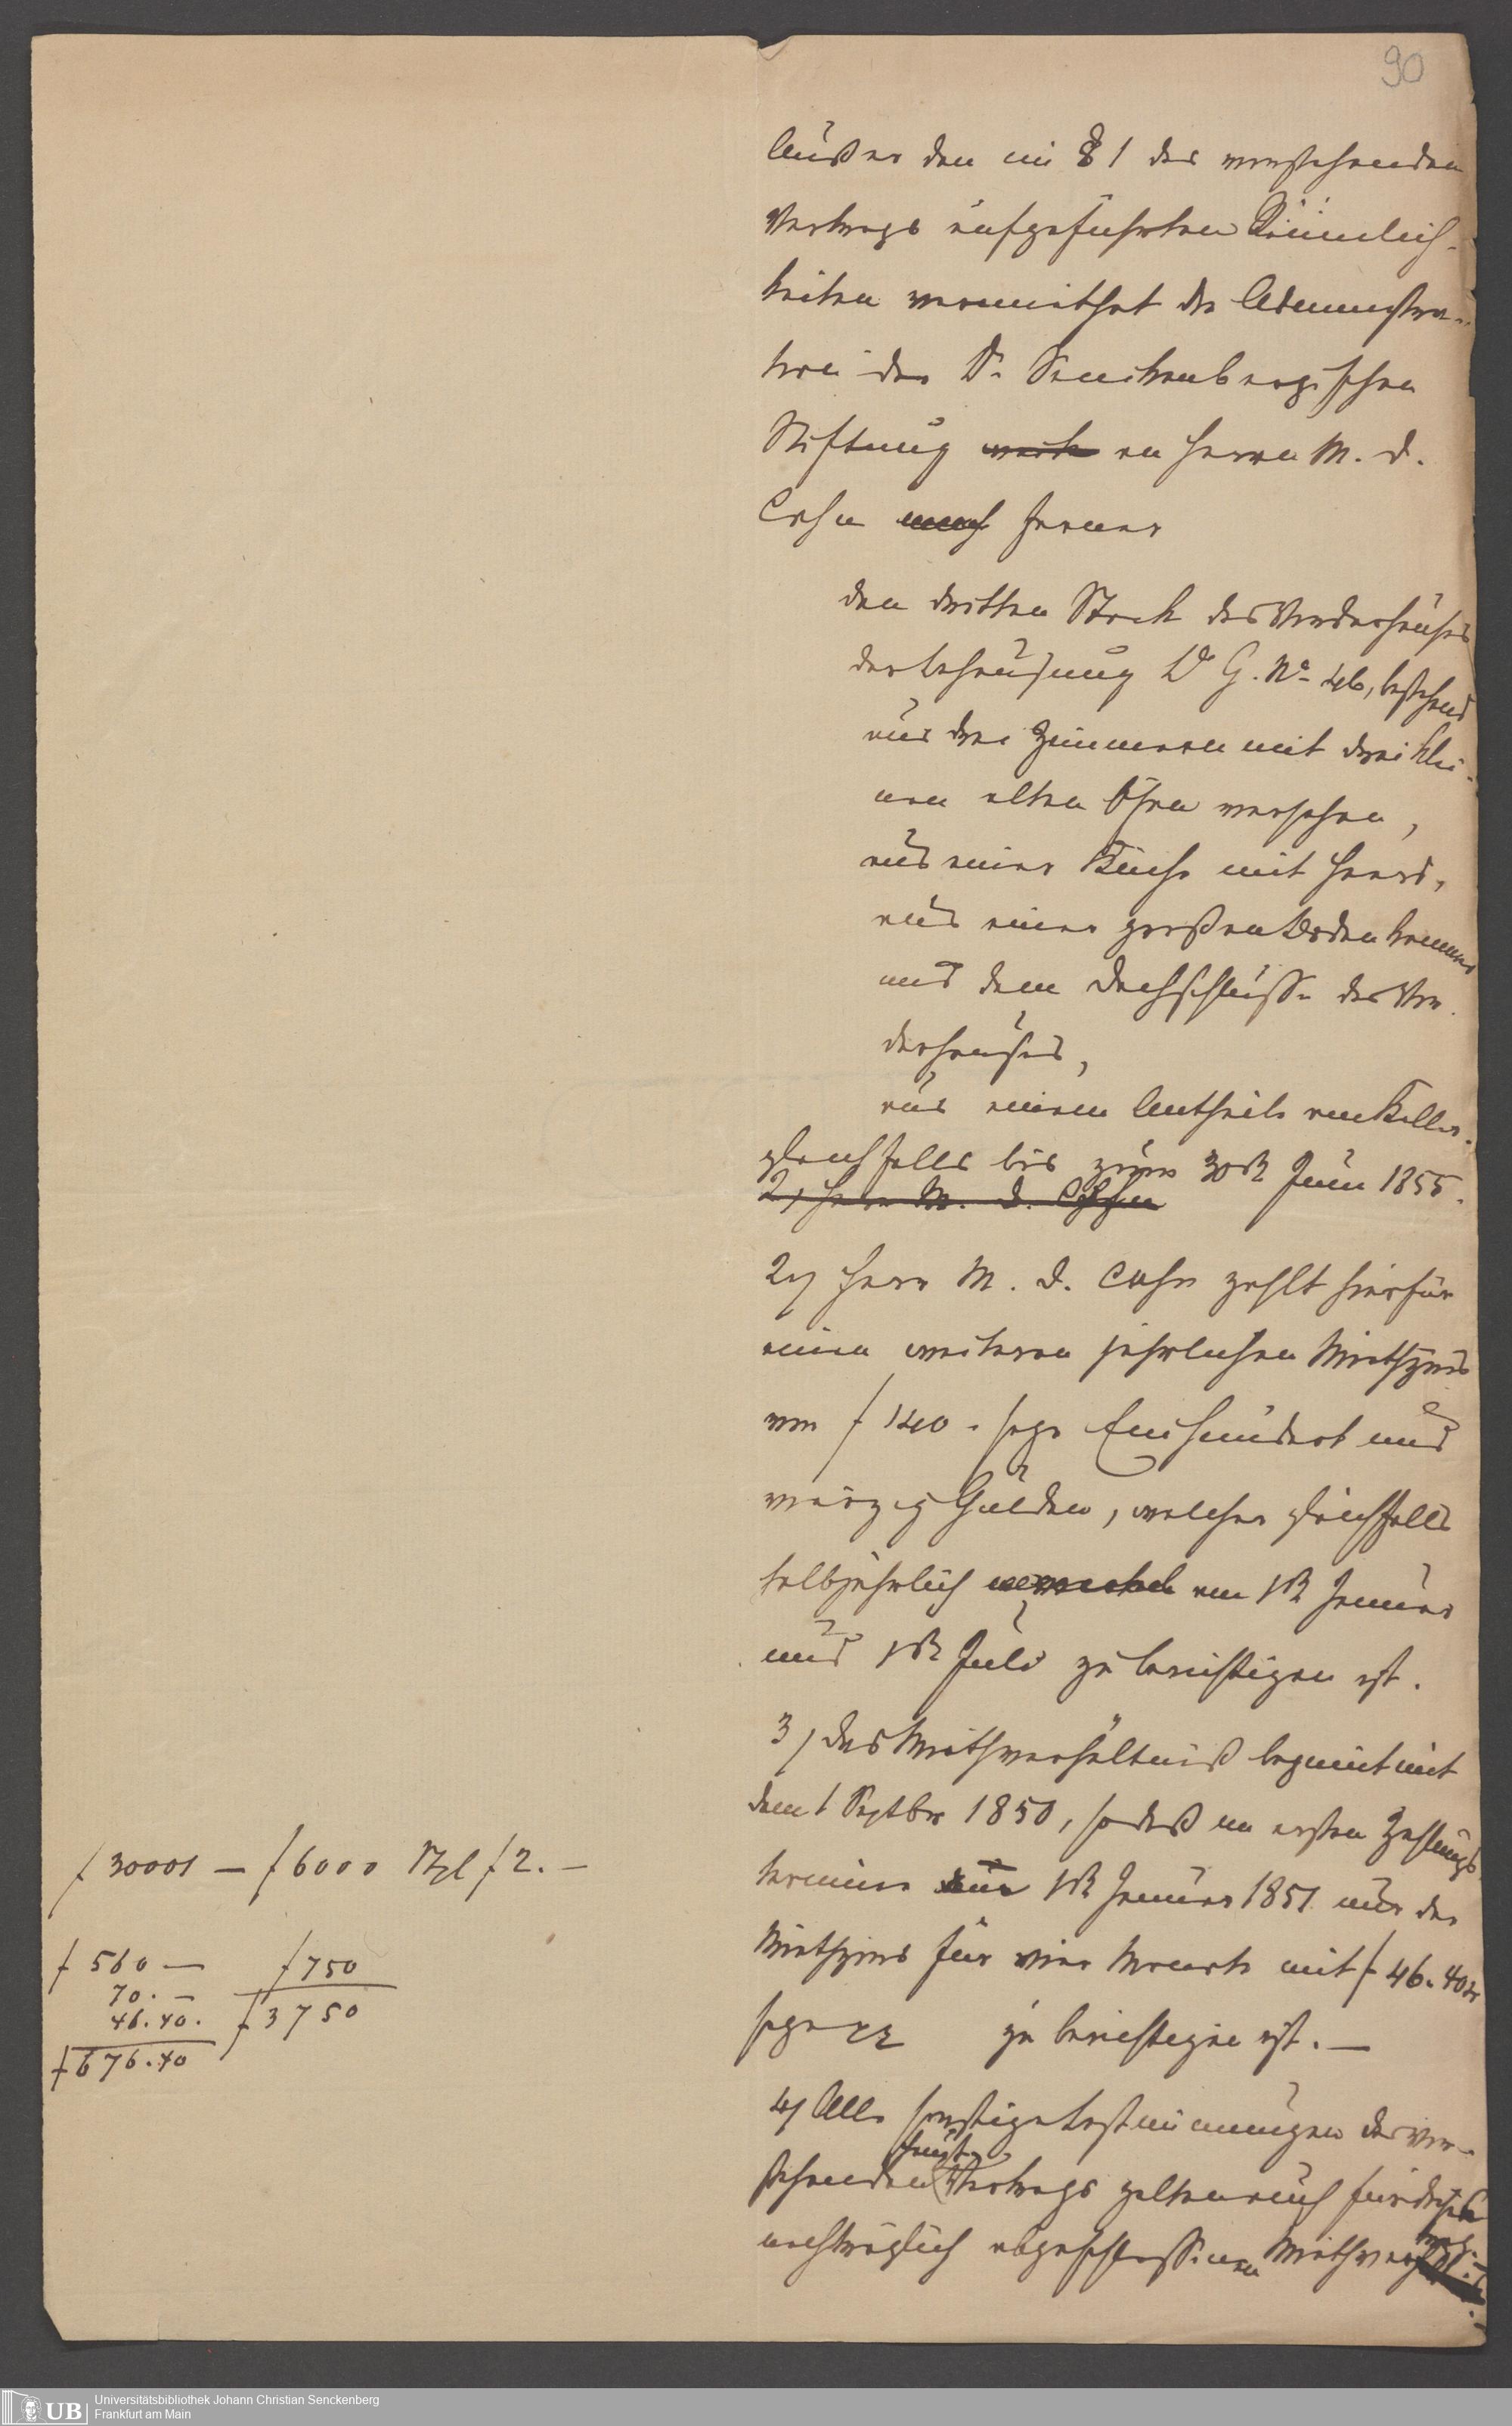 90
Außer den im § 1 des vorstehenden
Vertrags aufgeführten Räumlich-
keiten vermiethet die Administra-
tion der Dr. Senckenbergischen
Stiftung an Herrn M. D.
Cohn noch ferner
den dritten Stock des Vorderhauses
der Behausung D G. No. 46, bestehend
aus drei Zimmern mit drei klei-
nen alten Öfen versehen,
aus einer Küche mit Heerd,
aus einer großen Bodenkammer
und dem Dachschlusse des Vor-
derhauses,
aus einem Antheile am Keller.
gleichfalls bis zum 30ten Juni 1855.
2, Herr M. D. Cohn
2, Herr M. D. Cohn zahlt hierfür
einen weiteren jährlichen Miethzins
von f 140. sage Einhundert und
vierzig Gulden, welcher gleichfalls
halbjährlich am 1ten Januar
und 1ten Juli zu berichtigen ist.
3, Das Miethverhältniß beginnt mit
dem 1 Septbr 1850, so daß im ersten Zahlungs-
termine 1ten Januar 1851 nur der
Miethzins für vier Monate mit f 46. 40 x
sage zu berichtigen ist. —
4, Alle sonstige Bestimmungen des vor-
stehenden Haupt-Vertrags gelten auch für diesen
nachträglich abgeschlossenen
f 30001 — f 6000 f 2. —
f 560 — f 750
70. — f 3750
46. 40.
f 676. 40
UB Universitätsbibliothek Johann Christian Senckenberg
Frankfurt am Main